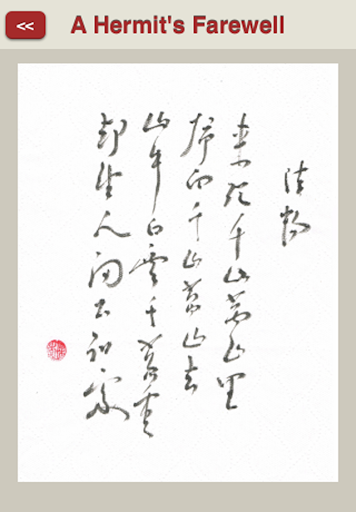 <<
A Hermit's Farewell
來從千山萬山里
歸向千山萬山去
山中白雲千萬重
却望人間不知處